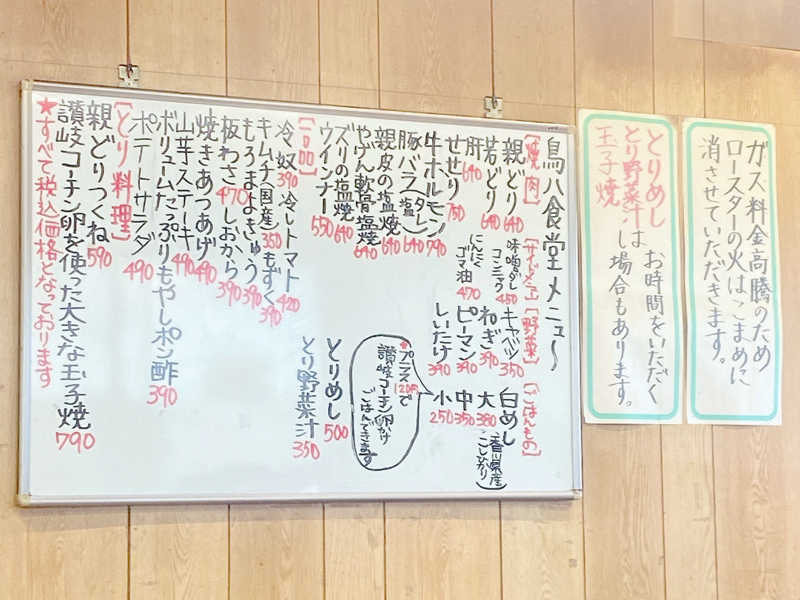 ガス料金高騰のため
ロースターの火はこまめに
消させていただきます。
とりめし
とり野菜汁は
玉子焼
お時間をいただく
場合もあります。
鳥八食堂メニュ〜
【焼肉】
親どり 640
若どり 640
肝 640
せせり 750
牛ホルモン 790
豚バラ(タレ)(塩) 640
親皮の塩焼 640
やげん軟骨塩焼 640
ズリの塩焼 640
ウインナー 550
味噌ダレ
コニック 450
にんにく
ゴマ油 470
【野菜】
キャベツ 350
ねぎ 390
ピーマン 390
しいたけ 390
【ごはんもの】
白めし
(香川県産こしひかり)
大 380
中 350
小 250
★プラス120円で
讃岐コーチン卵かけ
ごはんできます
とりめし 500
とり野菜汁 350
【一品】
冷奴 390
冷しトマト 420
キムチ(国産) 350
もずく 390
もろきゅう 390
板わさ 470
しおから 390
焼きあつあげ 490
山芋ステーキ 490
ボリュームたっぷりもやしポン酢 390
ポテートサラダ 490
【とり料理】
親どりつくね 590
讃岐コーチン卵を使った大きな玉子焼 790
★すべて税込価格となっております